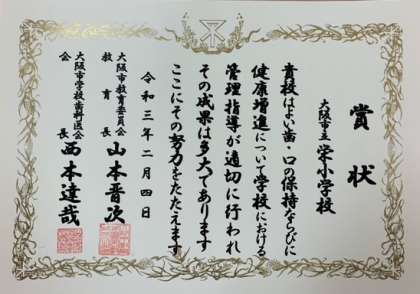 賞状
大阪市立栄小学校
貴校はよい歯・口の保持ならびに
健康増進について学校における
管理指導が適切に行われ
その成果は多大であります
ここにその努力をたたえます
令和三年二月四日
大阪市教育委員会
教育長 山本晋次
大阪市学校歯科医会
会長 西本達哉